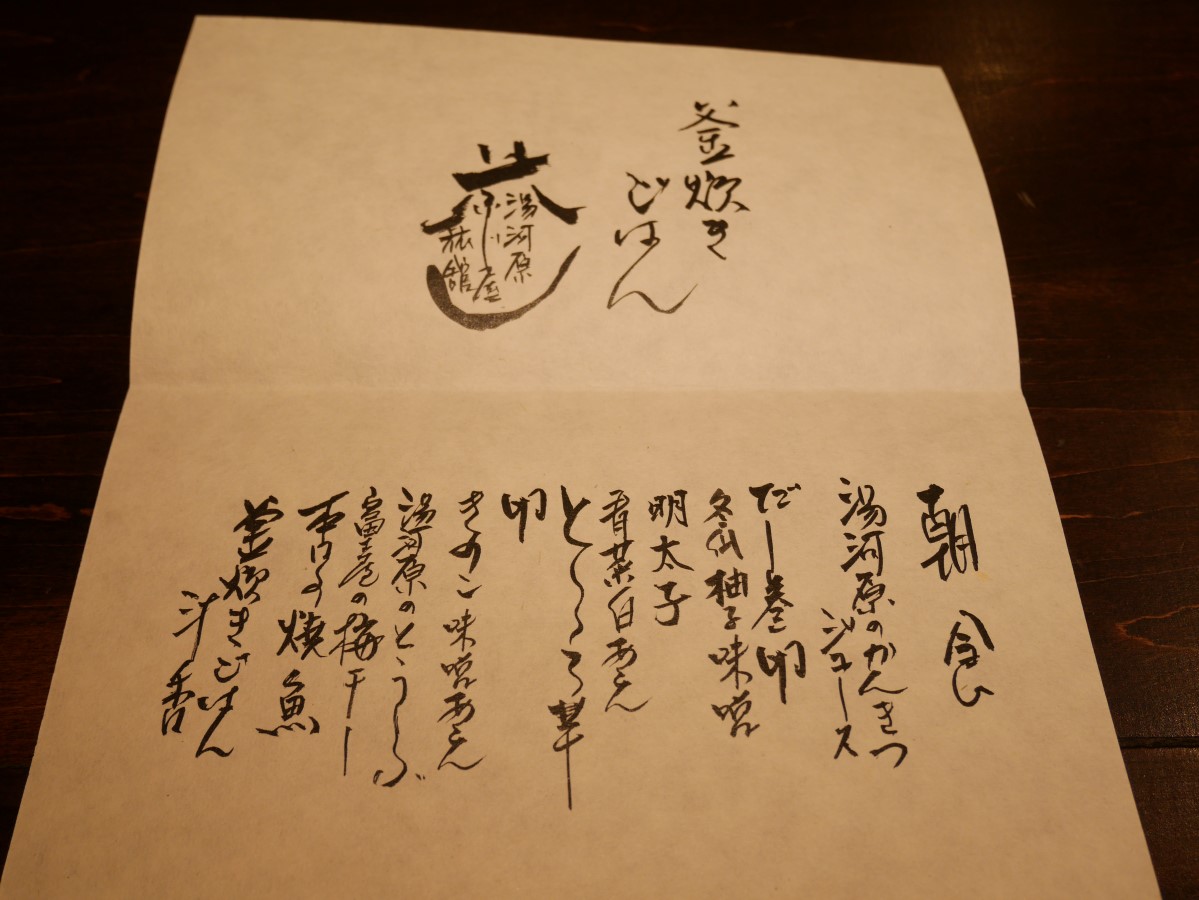 釜炊き
ごはん
湯河原
ふじ屋
旅館
朝食
湯河原のかんきつ
ジュース
だし巻卵
冬瓜柚子味噌
明太子
青菜白あえ
とろろ芋
卵
きのこ味噌あえ
湯河原のとうふ
富士屋の梅干し
本日の焼魚
釜炊きごはん
汁 香